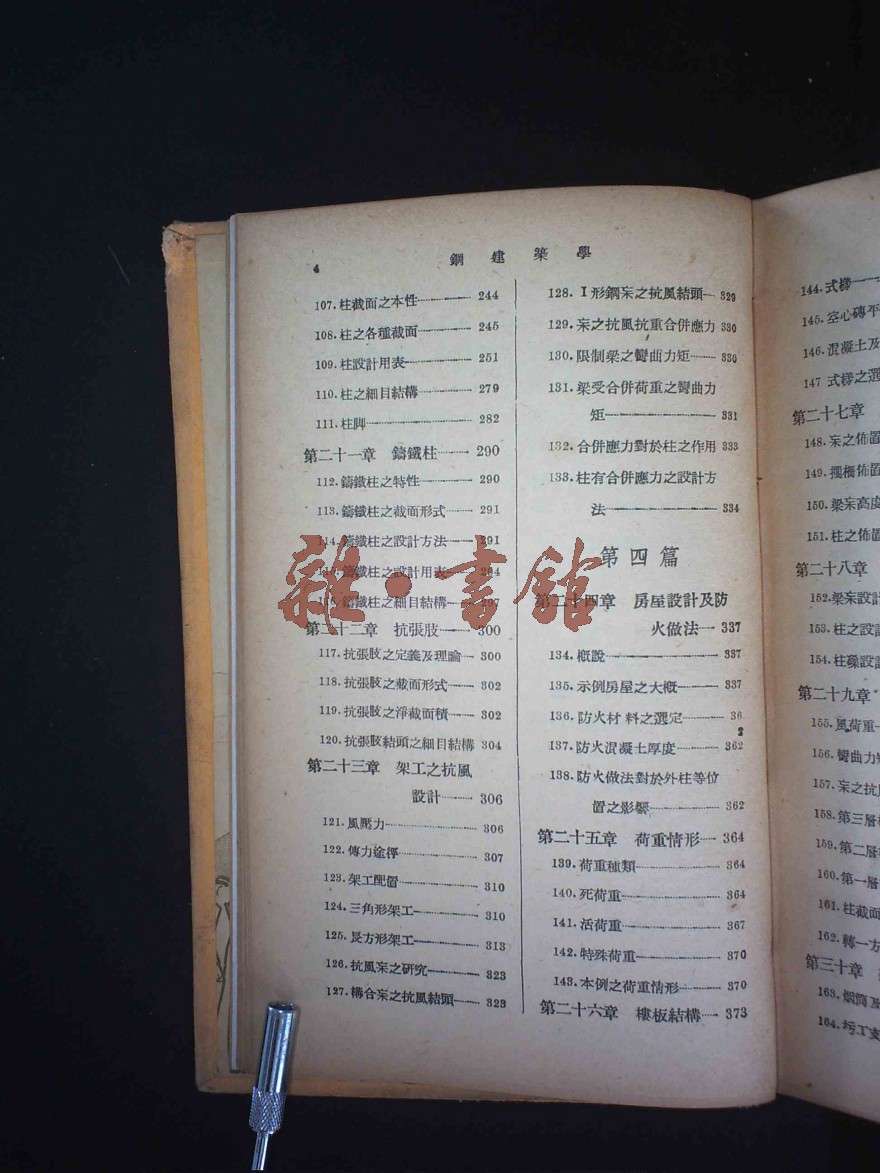 4
鋼建築學
107.柱截面之本性 244
108.柱之各種截面 245
109.柱設計用表 251
110.柱之細目結構 279
111.柱脚 282
第二十一章 鑄鐵柱 290
112.鑄鐵柱之特性 290
113.鑄鐵柱之截面形式 291
114.鑄鐵柱之設計方法 291
鑄鐵柱之設計用表
鑄鐵柱之細目結構
第二十二章 抗張肢 300
117.抗張肢之定義及理論 300
118.抗張肢之截面形式 302
119.抗張肢之淨截面積 302
120.抗張肢結頭之細目結構 304
第二十三章 架工之抗風
設計 306
121.風壓力 306
122.傳力途徑 307
123.架工配置 310
124.三角形架工 310
125.長方形架工 313
126.抗風梁之研究 323
127.構合梁之抗風結頭 323
128.I形鋼梁之抗風結頭 329
129.梁之抗風抗重合併應力 330
130.限制梁之彎曲力矩 330
131.梁受合併荷重之彎曲力
矩 331
132.合併應力對於柱之作用 333
133.柱有合併應力之設計方
法 334
第四篇
第二十四章 房屋設計及防
火做法 337
134.概說 337
135.示例房屋之大概 337
136.防火材料之選定 36
2
137.防火混凝土厚度 362
138.防火做法對於外柱等位
置之影響 362
第二十五章 荷重情形 364
139.荷重種類 364
140.死荷重 364
141.活荷重 367
142.特殊荷重 370
143.本例之荷重情形 370
第二十六章 樓板結構 373
144.式樣
145.空心磚平
146.混凝土及
147 式樣之選
第二十七章
149.擱柵佈置
151.柱之佈置
第二十八章
153.柱之設計
第二十九章
155.風荷重
156.彎曲力矩
158.第三層
159.第二層
160.第一層
161.柱截面
162.轉一方
第三十章
163.烟筒及
164.圬工支
雜·書館